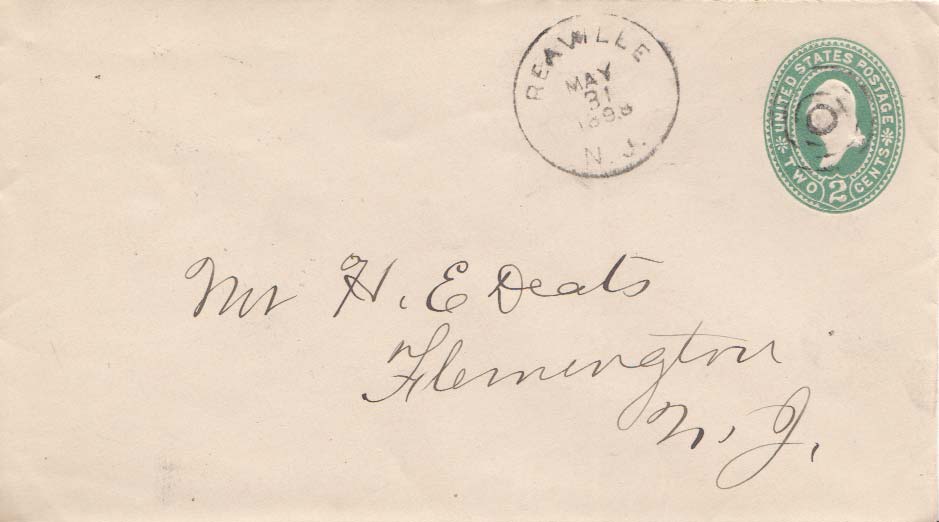 REAVILLE
MAY
31
1898
N. J.
UNITED STATES POSTAGE
TWO 2 CENTS
Mr H. E Deats
Flemington
N. J.